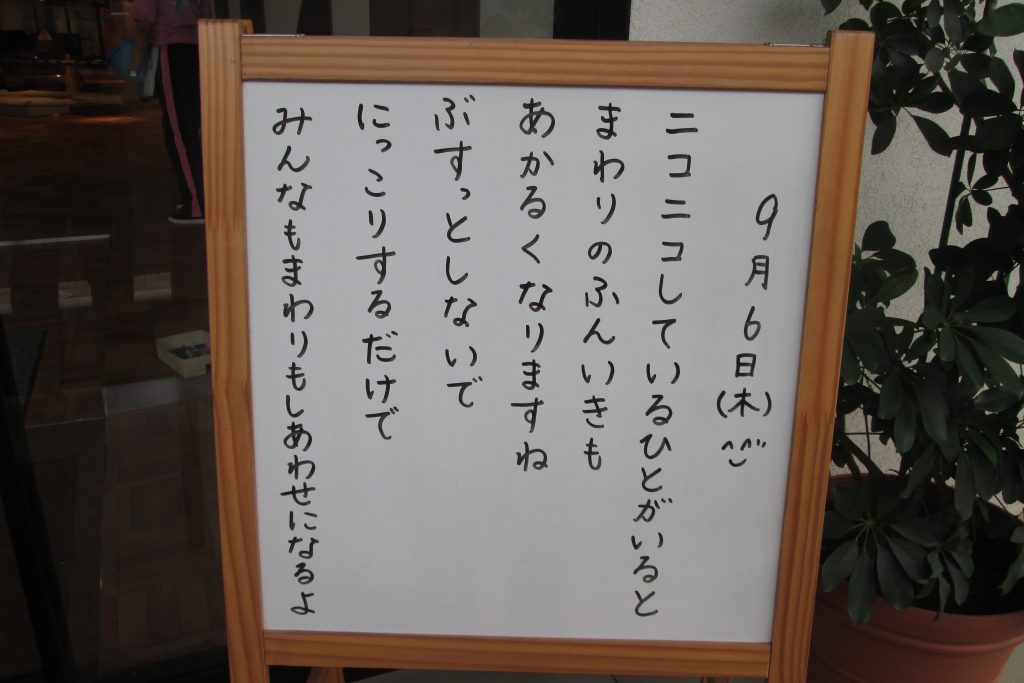 9月6日(木)^^
ニコニコしているひとがいると
まわりのふんいきも
あかるくなりますね
ぶすっとしないで
にっこりするだけで
みんなもまわりもしあわせになるよ